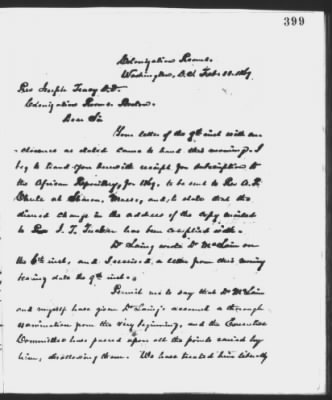 399
Colonization Rooms.
Washington, D.C. Feb. 11. 1869.
Rev Joseph Tracy D.D.
Colonization Rooms Boston.
Dear Sir
Your letter of the 9th inst with en-
-closures as stated came to hand this morning. I
beg to hand you herewith receipt for subscription to
the African Repository, for 1869, to be sent to Rev A. P.
at Mass, and, to state that the
desired change in the address of the copy mailed
to Rev J. T. Tucker has been complied with.
Dr Laing wrote Dr McLain on
the 6th inst, and I received a letter from him this morning
bearing date the 9th inst.
Permit me to say that Dr McLain
and myself have given Dr Laing's account a thorough
examination from the very beginning, and the Executive
Committee have passed upon all the points raised by
him, disallowing them. We have treated him liberally